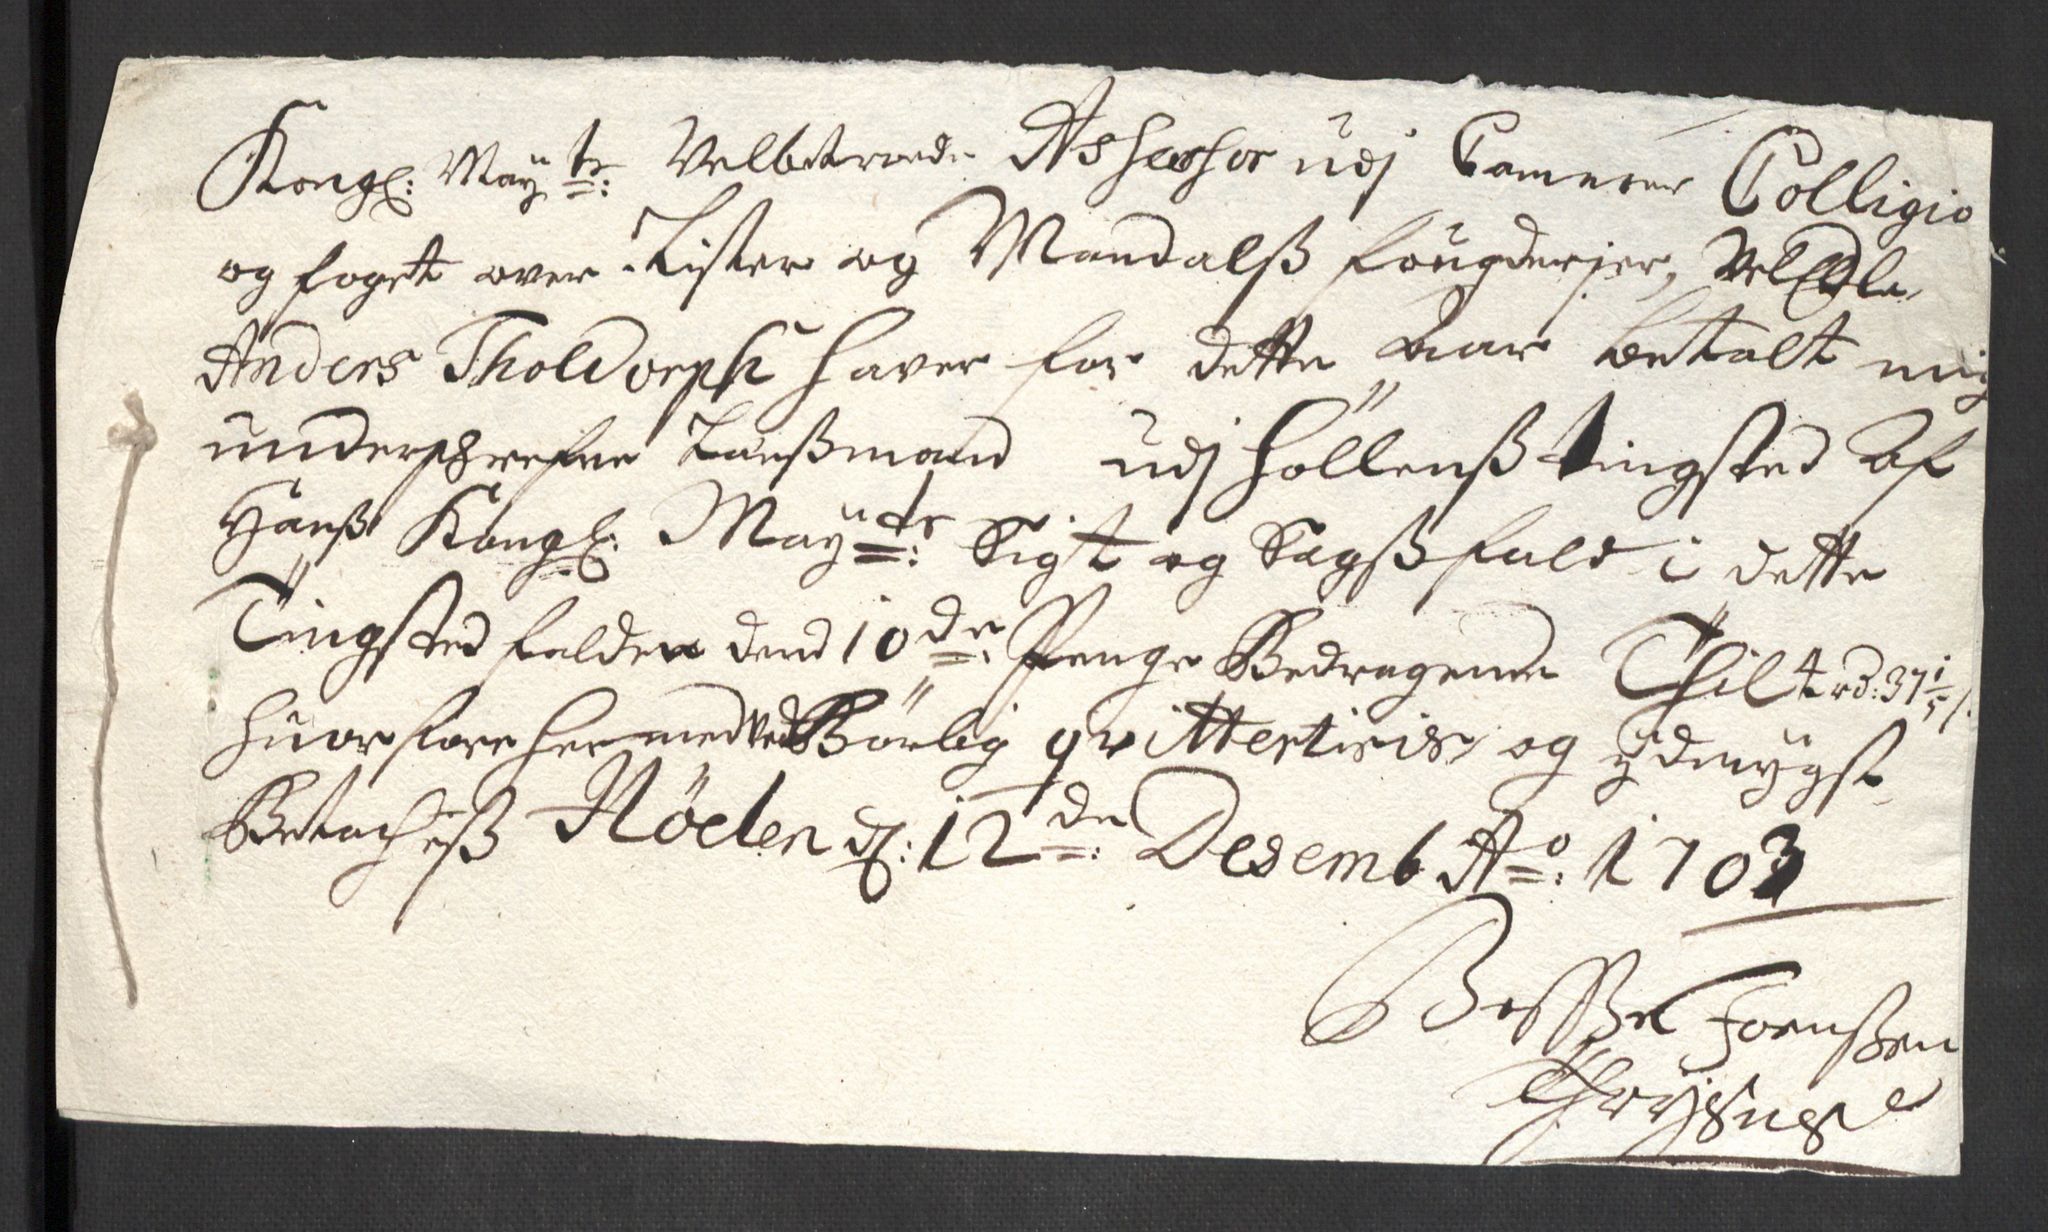 Kongl: Maÿtz: Velbetroede Ashashor udj Camerer Colligio
og foget over Lister og Mandalß fougderjer, VelEdle
Anders Tholdorph haver for dette aar betalt mig
underschrefne Lenßmand udj Höllenß tingsted Af
Hanß Kongl: Maÿtz: Sigt og Sagßfald i dette
Tingsted falden dend 10de Penge Bedragende Thil 4 rd: 37 1/5 s.
huorfore hermed ved Börlig qvitteriris, og ydmygst
Betacheß Nöelen d: 12de: Desemb Ao: 1703
Joenßen